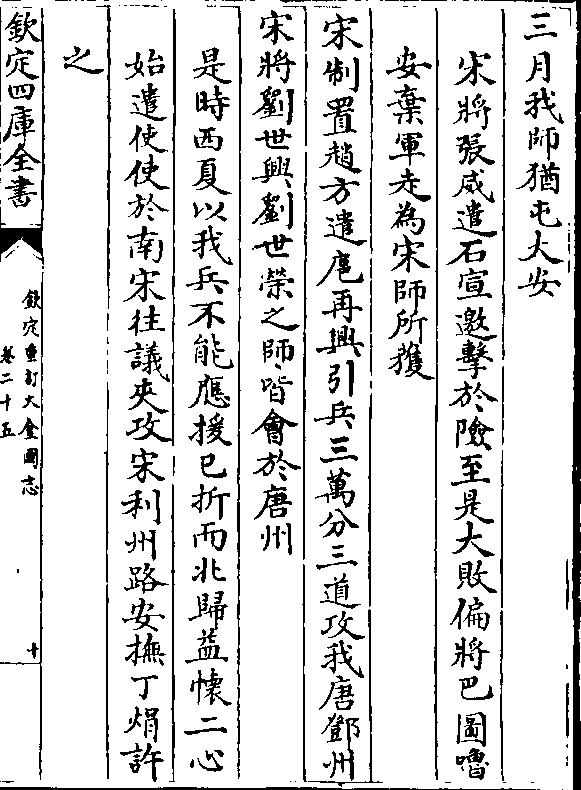 三月我師猶屯大安
宋將張威遣石宣邀擊於險至是大敗偏將巴圖嚕
安棄軍走為宋師所獲
宋制置趙方遣扈再興引兵三萬分三道攻我唐鄧州
宋將劉世興劉世榮之師皆會於唐州
是時西夏以我兵不能應援已折而北歸益懷二心
始遣使使於南宋往議夾攻宋利州路安撫丁焴許
之
欽定四庫全書
欽定重訂大金國志
卷二十五
十